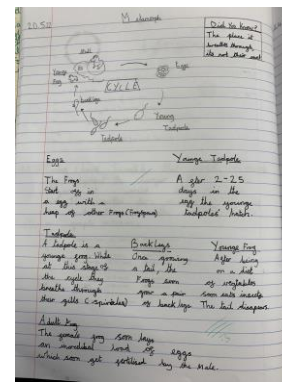 Did You Know?
The place it
breaths through
its not their
Adult
Eggs
CYCLE
Young
Frog
Backlegs
Young
Tadpole
Tadpole
Eggs
The Frogs
Start in
a egg with a
heap of other Frogs (Frogspawn)
Younge Tadpole
After 2-25
days in the
egg the younge
tadpoles hatch.
Tadpole
A tadpole is a
younge frog. While
at this stage of
the cycle they
breathe through
their gills (spiricles)
Back Legs
Once growing
a tail, the
Frogs soon
grow a pair
of back legs
Younge Frog
After being
on a diet
of vegtables
soon eats insects
The tail disapears.
Adult Frog
The female frog soon lays
an incredibel of eggs
which soon get fertilised by the Male.